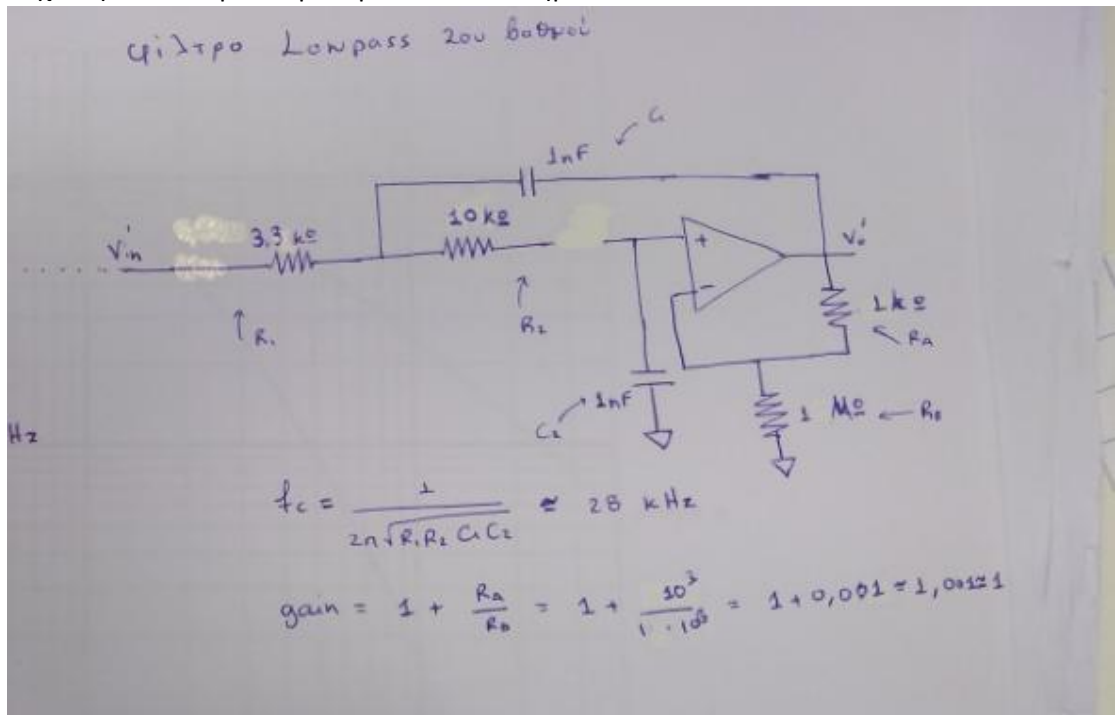 φίλτρο Lowpass 2ου βαθμού
C₁
1nF
V'in
3.3 kΩ
10 kΩ
+
-
V'o
R₁
R₂
1 kΩ
RA
C₂
1nF
1 MΩ
RB
Hz
fc = 1 / 2π√R₁R₂C₁C₂ ≈ 28 kHz
gain = 1 + RA / RB = 1 + 10³ / 1·10⁶ = 1 + 0,001 = 1,001≈1